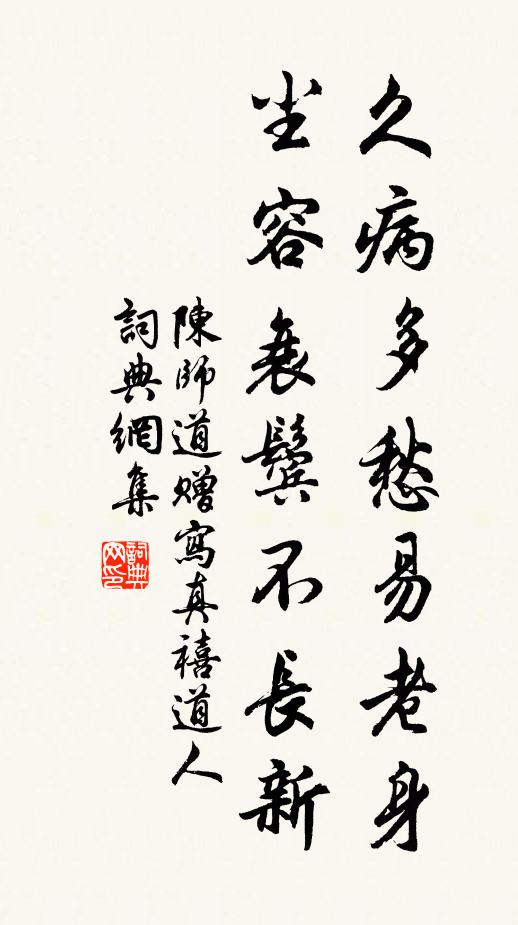 久病多愁易老身
尘容衰鬓不長新
陳師道贈寫真禧道人
詞典網集
詞典网印